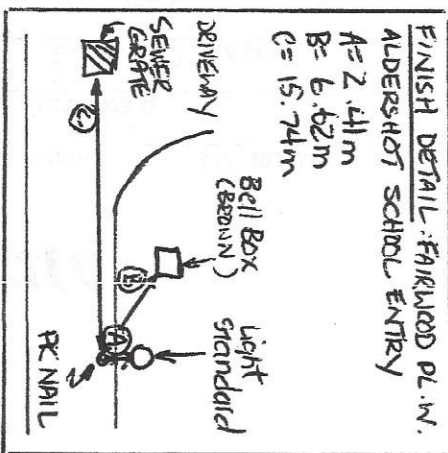 FINISH DETAIL: FAIRWOOD PL. W.
ALDERSHOT SCHOOL ENTRY
A= 2.41m
B= 6.62m
C= 15.74m
DRIVEWAY
SEWER
GRATE
Bell BOX
(BROWN)
Light
Standard
C
B
A
PK NAIL